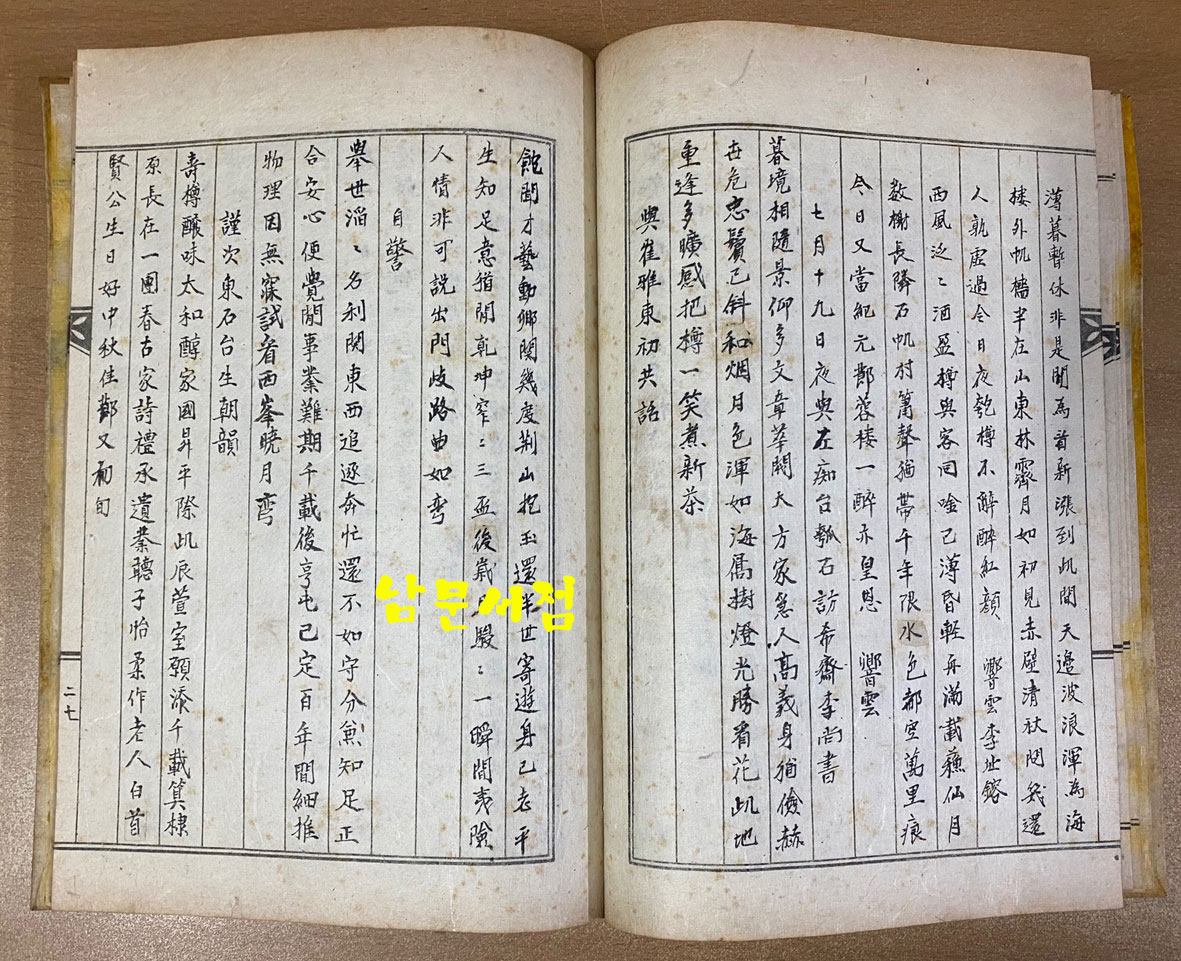 薄暮暫休非是閒為看新漲到此間天邊波浪渾為海
樓外帆檣半在山東林霽月如初見赤壁清秋問幾還
人孰虛過今日夜匏樽不辭醉紅顔 響雲李址鎔
西風泛〻酒盈樽與客同唫已薄昏輕舟滿載蘇仙月
數榭長隣石帆村簫聲猶帶千年恨水色都空萬里痕
今日又當紀元節蓉樓一醉亦皇恩 響雲
七月十九日夜與左痴台瓠石訪希齋李尚書
暮境相隨景仰多文章華閥大方家急人高義身猶儉赫
世危忠鬢已斜和烟月色渾如海隔樹燈光勝看花此地
重逢多曠感把樽一笑煮新茶
與崔雅東初共話
飽聞才藝動鄉関幾度荊山抱玉還半世寄遊身已老平
生知足意猶閒乾坤窄〻三盃後歲月駸〻一瞬間夷險
人情非可說出門歧路曲如彎
自警
舉世滔〻名利関東西追逐奔忙還不如守分兼知足正
合安心便覺閒事業難期千載後亨屯已定百年間細推
物理因無寐試看西峯曉月彎
謹次東石台生朝韻
壽樽釀味太和醇家國昇平際此辰萱室願添千載算棣
原長在一團春古家詩禮承遺業聽子怡柔作老人白首
賢公生日好中秋佳節又初旬
二七
남문서점